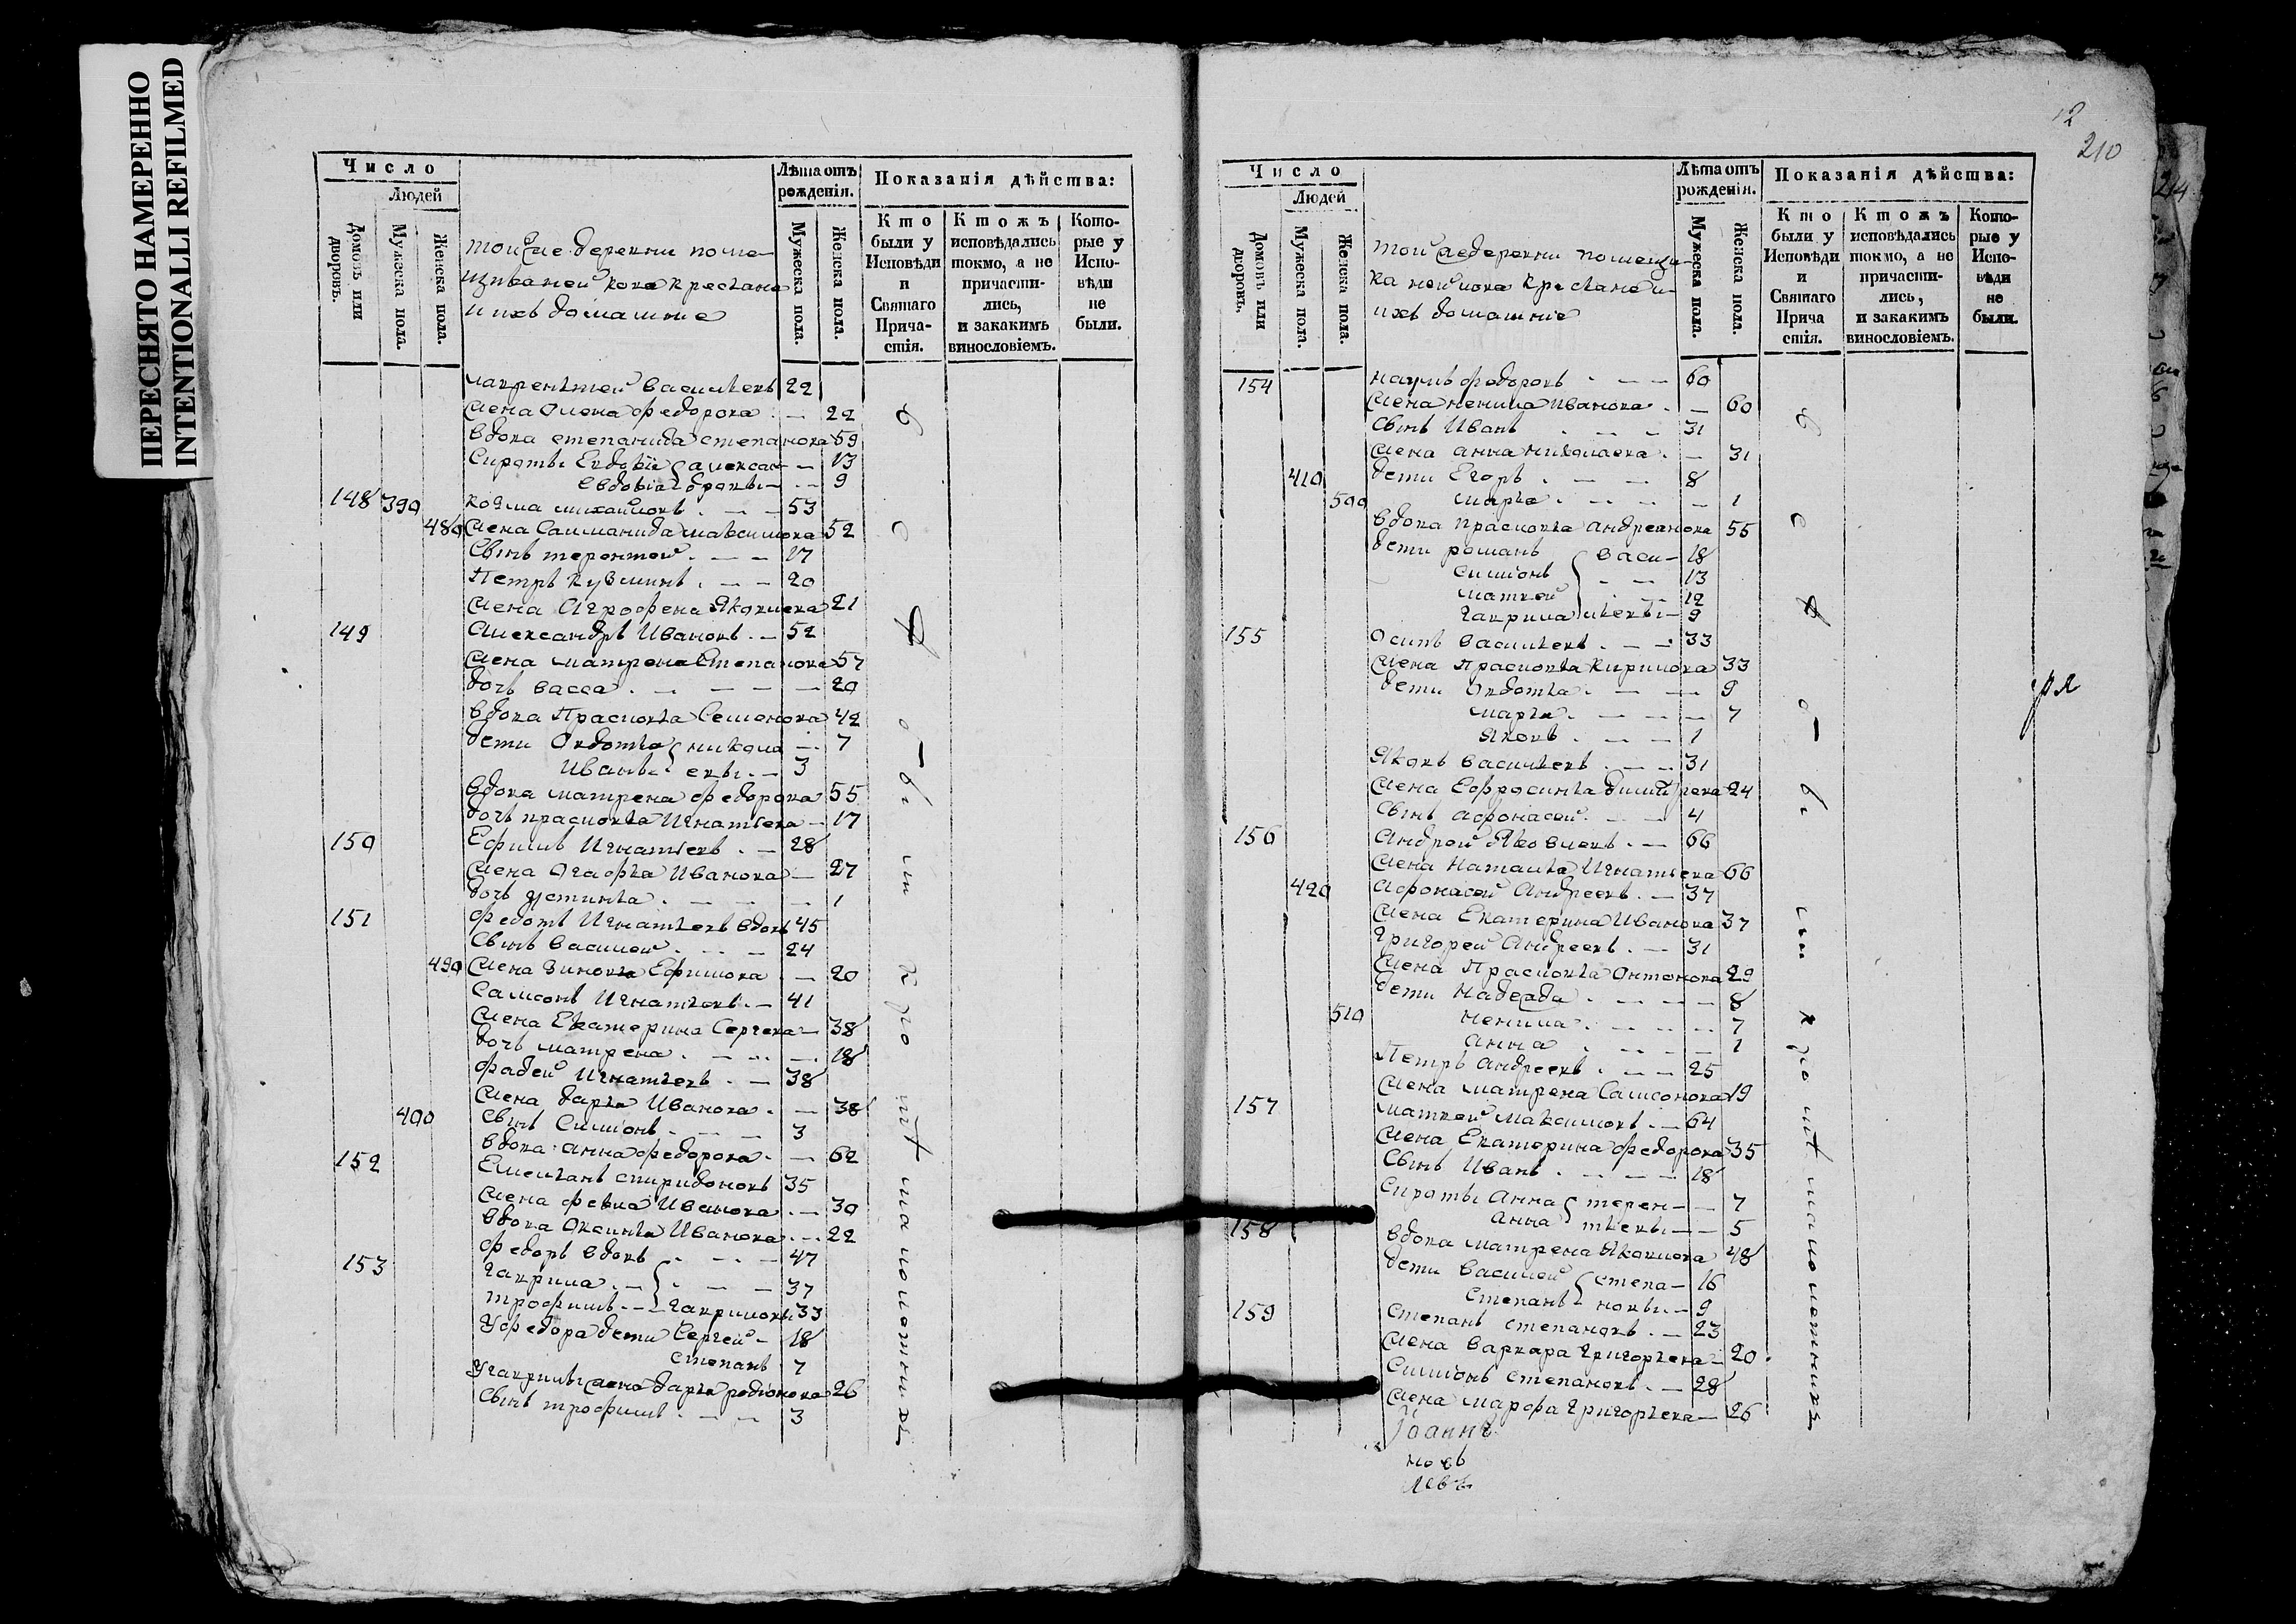 ПЕРЕСНЯТО НАМЕРЕННО
INTENTIONALLI REFILMED
Число
Людей
Домовъ или дворовъ.
Мужеска пола.
Женска пола.
тойже деревни поме-
и ихъ домашние
Лѣта отъ рожденія.
Мужеска пола.
Женска пола.
Показанія дѣйства:
Кто были у Исповѣди и Святаго Прича-стія.
Ктожъ исповѣдались токмо, а не причасти-лись, и закакимъ винословіемъ.
Кото-рые у Испо-вѣди не были.
лаврентей Васильевъ 22
жена Олена федорова - 22
вдова степанида степанова 59
Сироты Евдокіи алексан- - 13
Евдокіа дровы - - 9
148 390 козма михайловъ - - 53
480 жена Саломанида максимова 52
Сынъ терентей - - 17
Петръ Кузминъ - - 20
жена Аграфена Яковлева 21
149 Александръ Ивановъ - 52
жена матрена Степанова 57
дочь васса - - - 20
вдова Прасковья Семенова 42
дети Овдотья никола - 7
Иванъ евы - 3
вдова матрена федорова 55
дочь прасковья Игнатьева - 17
150 Ефимъ Игнатьевъ - 28
жена Огафья Иванова - 27
дочь устинья - - - 1
151 федотъ Игнатьевъ вдовъ 45
Сынъ василей - - 24
490 жена Зиновья Ефимова - 20
Самсонъ Игнатьевъ - 41
жена Екатерина Сергева - 38
дочь матрена - - - 18
фадей Игнатьевъ - 38
жена дарья Иванова - 38
400 Сынъ Симіонъ - - 3
вдова анна федорова - 62
152 Емельянъ спиридоновъ 35
жена февла Иванова - 30
вдова Оксинья Иванова - 22
153 федоръ вдовъ - - 47
гаврила - - 37
трофимъ - гавриловы 33
У федора дети Сергей - 18
степанъ 7
У гаврилы жена дарья родіонова 26
Сынъ трофимъ - - 3
12
210
Число
Людей
Домовъ или дворовъ.
Мужеска пола.
Женска пола.
тойже деревни помещи-
ихъ домашніе
Лѣта отъ рожденія.
Мужеска пола.
Женска пола.
Показанія дѣйства:
Кто были у Исповѣди и Святаго Прича стія.
Ктожъ исповѣдались токмо, а не причасти-лись, и закакимъ винословіемъ.
Кото-рые у Испо-вѣди не были.
154 наумъ федоровъ - - 60
жена ненила Иванова - 60
Сынъ Иванъ - - 31
жена анна николаева - 31
410 дети Егоръ - - 8
500 марья - - - 1
вдова прасковья андреянова 55
дети романъ васи- 18
симіонъ - - 13
матвей - - 12
гаврила льевы - 9
155 Осипъ васильевъ - - 33
жена Прасковья Кирилова 33
дети Овдотья - - - 9
марья - - - 7
Яковъ - - 1
Яковъ васильевъ - - 31
жена Ефросинья дмитрева 24
Сынъ афонасей - - 4
156 Андрей Яковлевъ - 66
жена Наталья Игнатьева 66
420 афонасей Андреевъ - 37
жена Екатерина Иванова 37
григорей Андреевъ - 31
жена Прасковья Онтонова 29
дети Надежда - - - 8
510 ненила - - - 7
анна - - - 1
Петръ андреевъ - - 25
жена матрена Самсонова 19
157 матвей максимовъ - 64
жена Екатерина федорова 35
Сынъ Иванъ - - 18
Сироты анна терен- - 7
анна тьевы - - 5
158 вдова матрена Яковлева 48
дети василей степа- 16
степанъ новы - 9
159 степанъ степановъ - 23
жена варвара григорьева - 20
Симіонъ степановъ - 28
жена марфа григорьева - 26
Іоаннъ